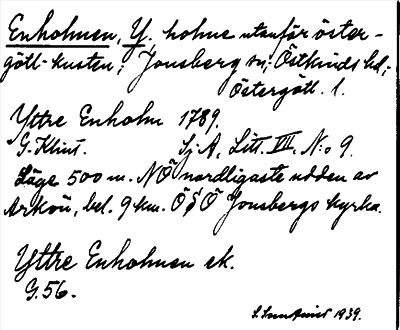 Enholmen, Y. holme utanför öster-
götl-kusten; Jonsberg sn; Östkinds hd;
Östergötl. l.
Yttre Enholm 1789.
G. Klint. Sj. A, Litt. VII, N:o 9.
Läge 500 m. NÖ nordligaste udden av
Arkön, bel. 9 km. ÖSÖ Jonsbergs kyrka.
Yttre Enholmen ek.
G. 56.
1939.